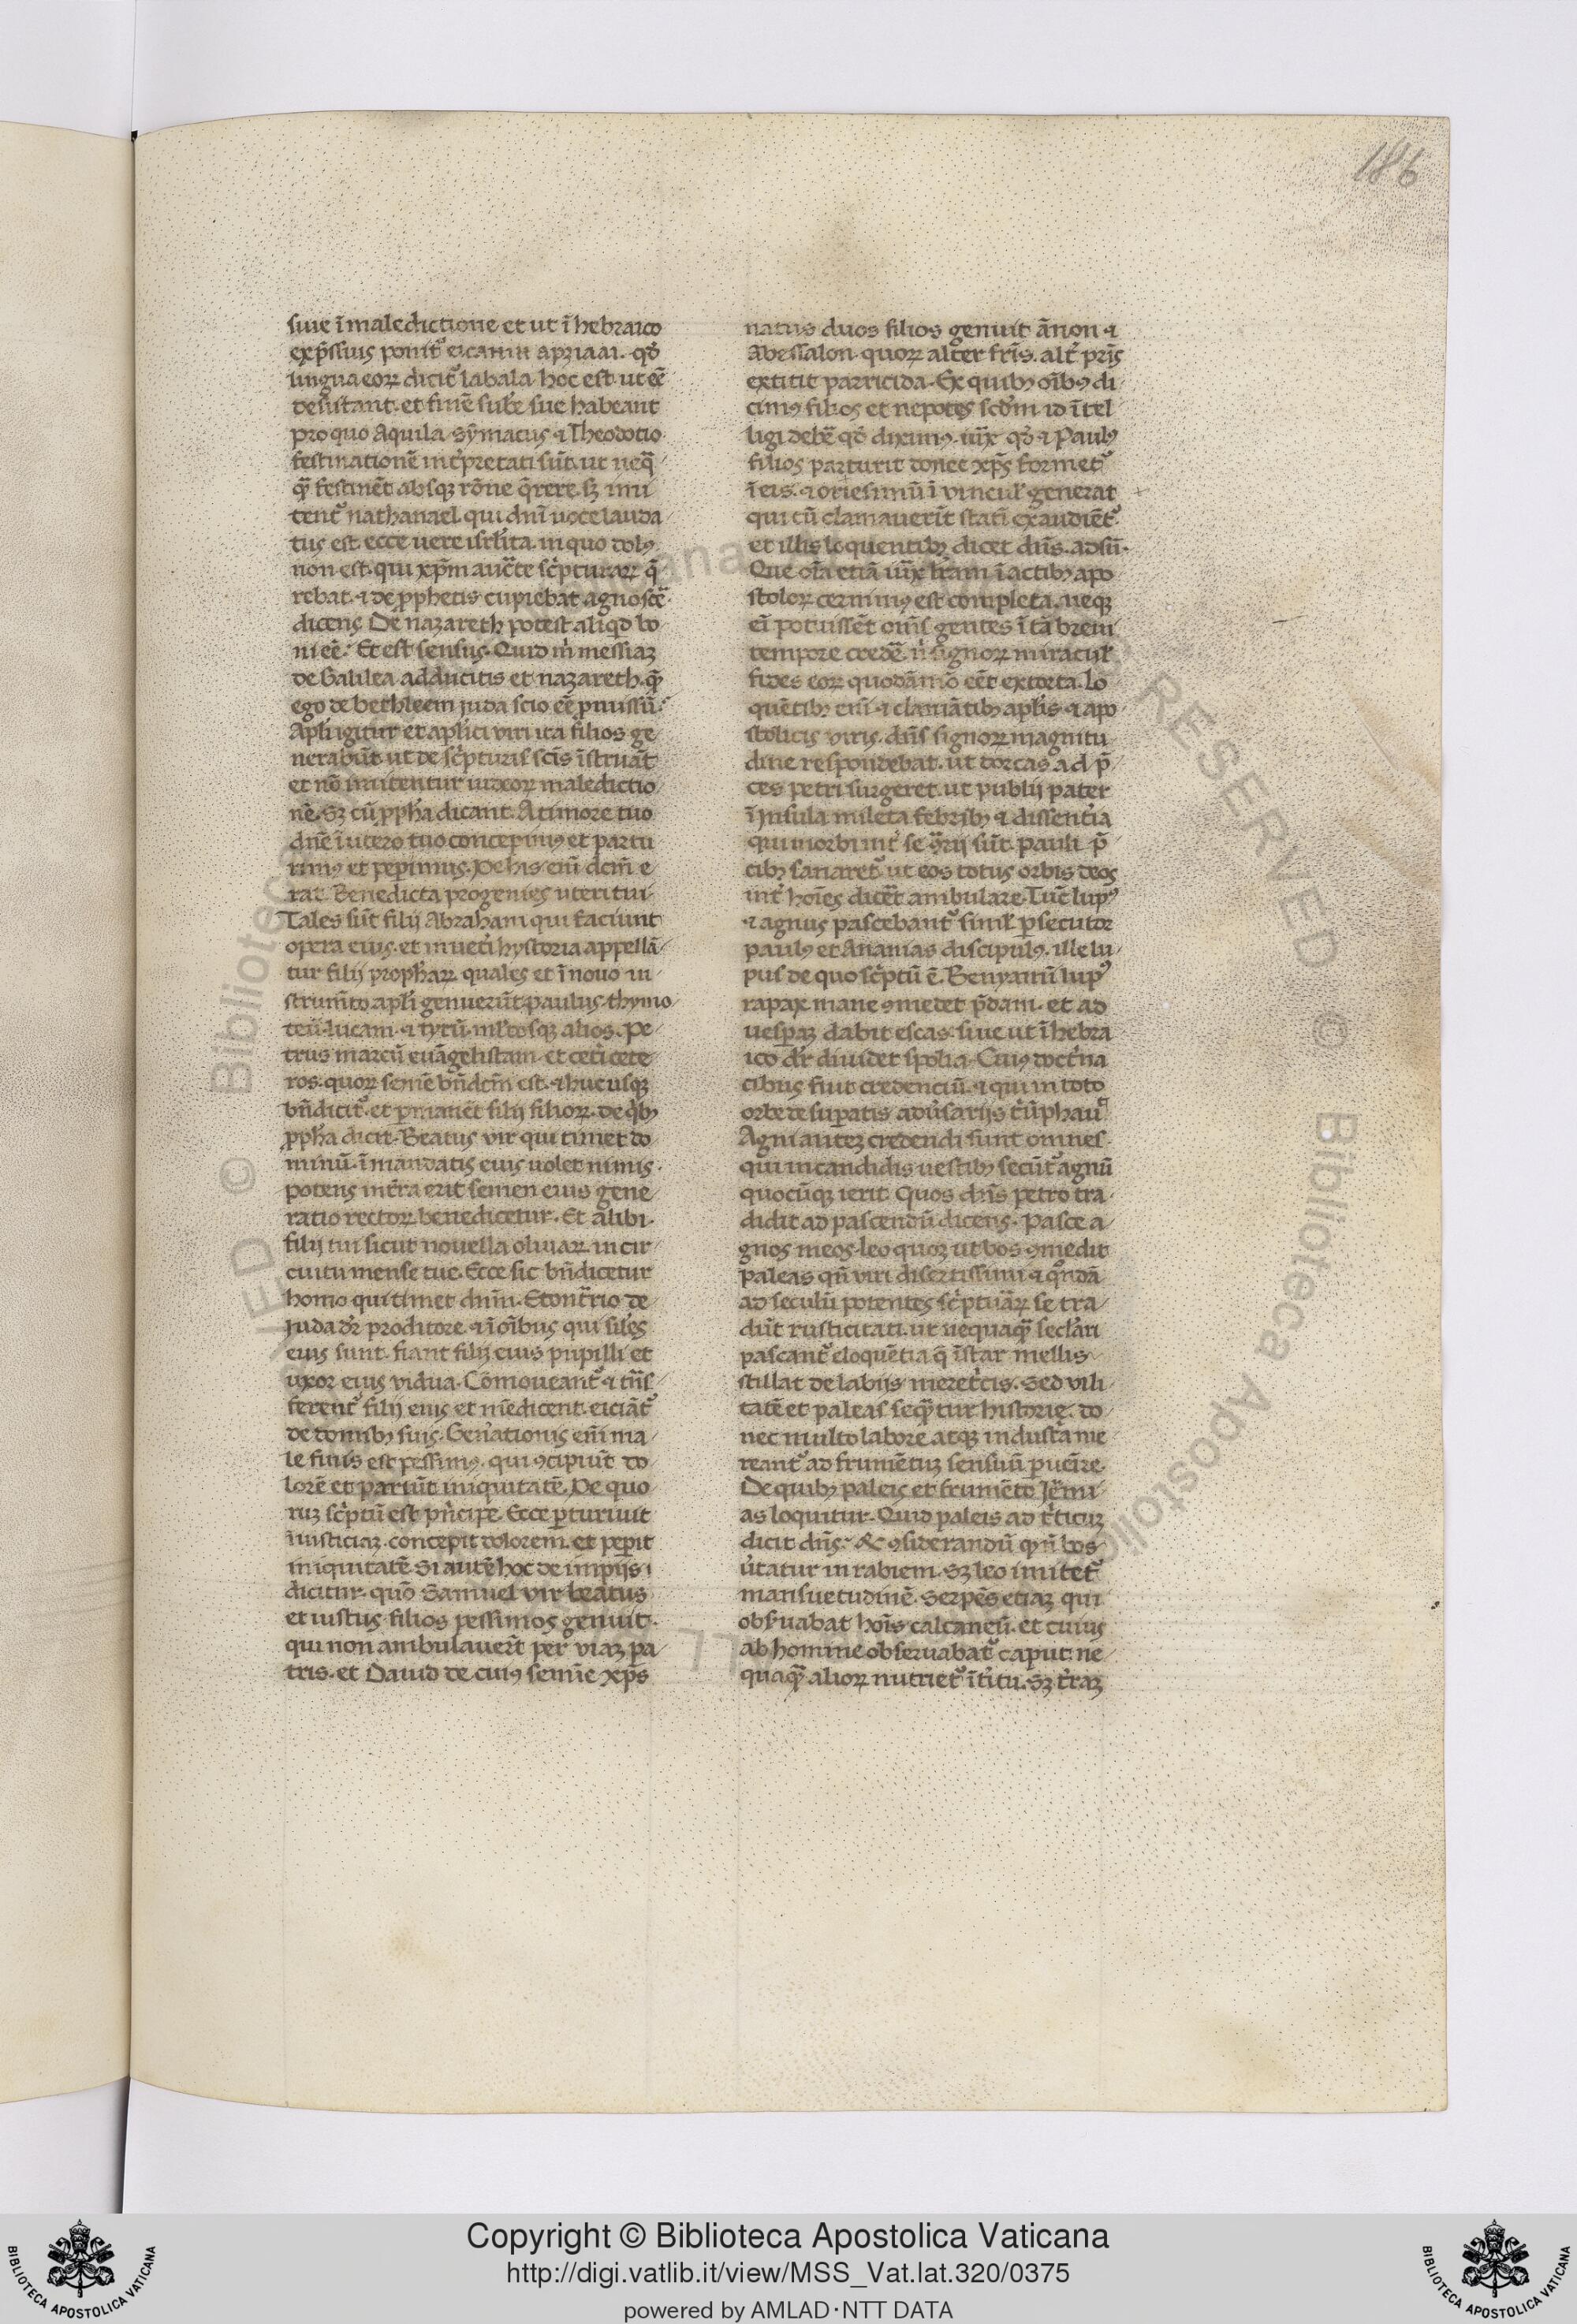 186
siue ī maledictione et ut ī hebraico
exp̄ssius ponit᷒ eicanin apriaai. qd̄
lingua eoꝝ dicit᷒ labala hoc est ut eē
desistant. et finē subr̄e sue habeant
pro quo Aquila. Sȳmacus ⁊ Theodotio
festinationē int̄pretati sūt. ut neq̄
q̄ festinēt absqꝫ rōne q̄rere. sꝫ imi
tent᷒ nathanael. qui dnī uoce lauda
tus est. ecce uere isrl̄ita. in quo dolꝰ
non est. qui xp̄m auct̄te sc̄pturaꝝ q̄
rebat. ⁊ de pphetis cupiebat agnoscē
dicens De nazareth potest aliqd bo
ni eē. Et est sensus. Quid m̄ messiaꝫ
de Galilea adducitis et nazareth. q̄
ego de bethleem iuda scio eē pmissū.
Apl̄i igitur et apl̄ici viri ita filios ge
nerabūt ut de sc̄pturis scīs īstruāt᷒
et nō imitentur iudeoꝝ maledictio
nē. Sꝫ cū ppha dicant. A timore tuo
dnē ī utero tuo concepimꝰ et partu
rimꝰ et peperimus. De his eni dcm̄ e
rat Benedicta progenies uteri tui
Tales sūt filij Abraham qui faciunt
opera eius. et in uet̄i hystoria appellā
tur filij prophaꝝ quales et ī nouo in
strumto apl̄i genuerūt. paulus. thymo
teū. lucam. ⁊ tytū. ml̄tosqꝫ alios. Pe
trus marcū euāgelistam. et cet̄i cete
ros. quoꝝ semē bn̄dctm̄ est. ⁊ hucusqꝫ
bn̄dicit᷒. et pmanēt filij filioꝝ. de qbꝫ
ppha dicit. Beatus vir qui timet do
minū. ī mandatis eius uolet nimis.
potens int̄ra erit semen eius gene
ratio rectoꝝ benedicetur. Et alibi.
filij tui sicut nouella oliuaꝝ in cir
cuitu mense tue. Ecce sic bn̄dicetur
homo qui timet dnm̄. Econt̄rio de
Iuda dr̄ proditore. ⁊ ī oībus qui siles
eius sunt. fiant filij eius pupilli et
uxor eius vidua. Cōmoueant᷒ ⁊ tn̄s
ferent᷒ filij eius et mēdicent. eiciāt᷒
de domibꝫ suis. Gen̄ationis eni ma
le finis est pessimꝰ. qui ꝯcipiūt do
lorē et pariūt iniquitatē. De quo
ruꝫ sc̄ptū est pn̄cipe. Ecce pturiuit
iniusticiaꝫ. concepit dolorem. et peperit
iniquitatē. Si autē hoc de impijs
dicitur. quō Samuel vir beatus
et iustus filios pessimos genuit.
qui non ambulauer̄t per viaꝫ pa
tris. et Dauid de cuiꝰ semīe xp̄s
natus duos filios genuit ānon ⁊
Abessalon. quoꝝ alter fr̄is. alt̄ pr̄is
extitit parricida. Ex quibꝫ oībꝫ di
cimꝰ filios et nepotes scdm̄ id ītel
ligi debē qd̄ diximꝰ. iux̄ qd̄ ⁊ Paulꝰ
filios parturit donec xp̄s formet᷒
ī eis. ⁊ oriesimū ī vincul̄ generat
qui cū clamauerīt statī exaudiēt᷒.
et illis loquentibꝫ dicet dn̄s. adsū.
Que oīa etiā iux̄ lr̄am ī actibꝫ apo
stoloꝝ cernimꝰ est completa. neqꝫ
eī potuissēt oms̄ gentes ī tā breui
tempore credē. n̄ signoꝝ miracul̄
fides eoꝝ quodāmō eēt extorta. Lo
quētibꝫ eni ⁊ clamātibꝫ apl̄is ⁊ apo
stolicis viris. dn̄s signoꝝ magnitu
dine respondebat. ut dorcas ad p̄
ces petri surgeret. ut publij pater
ī Insula mileta febribꝫ ⁊ dissent̄ia
qui morbi int̄ se ꝯ̄rij sūt. pauli p̄
cibꝫ sanaret᷒. ut eos totus orbis deos
int̄ hoīes dicēt ambulare. Tūc lupꝰ
⁊ agnus pascebant᷒ simul̄ psecutor
paulꝰ et Ananias discipulꝰ. ille lu
pus de quo sc̄ptū ē. Benyamī lupꝰ
rapax mane ꝯmedet p̄dam. et ad
uesperaꝫ dabit escas. siue ut ī hebra
ico dr̄ diuidet spolia. Cuiꝰ doct̄na
cibus fiut credenciū. ⁊ qui in toto
orbe desuperatis adu̇sarijs t̄ūphau̇
Agni auteꝫ credendi sunt omnes
qui in candidis uestibꝫ secūt᷒ agnū
quocūqꝫ ierit. Quos dn̄s petro tra
didit ad pascendū dicens. Pasce a
gnos meos. leo quoꝫ ut bos ꝯmedit
paleas qn̄ viri disertissimi ⁊ qndā
ad seculū potentes sc̄ptuāꝝ se tra
dūt rusticitati. ut nequaq̄ secl̄ari
pascant᷒ eloquētia q̄ īstar mellis
stillat de labijs meret̄cis. Sed vili
tatē et paleas seqūtur historie. do
nec multo labore atqꝫ industa me
reant᷒ ad frumētuꝫ sensuū puenire.
De quibꝫ paleis et frumēto Jēmi
as loquitur. Quid paleis ad t̄ticuꝫ
dicit dn̄s. &c ꝯsiderandū q n̄ bos
u̇tatur in rabiem. Sꝫ leo imitet᷒
mansuetudinē. Serpēs etiaꝫ qui
obs̄uabat hoīs calcaneū. et cuius
ab homine obseruabat᷒ caput. ne
quaq̄ alioꝝ nutriet᷒ īt̄itu. Sꝫ t̄raꝫ
Copyright © Biblioteca Apostolica Vaticana
http://digi.vatlib.it/view/MSS_Vat.lat.320/0375
powered by AMLAD·NTT DATA